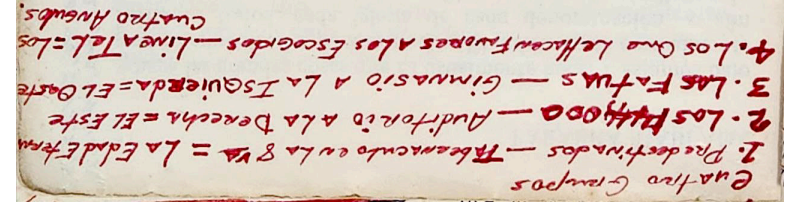 Cuatro Grupos
1. Predestinados — Tabernaculo en La 8 va = La Edad Etern
2. Los 144,000 — Auditorio a la Derecha = El Este
3. Las Fatuas — Gimnasio a La Isquierda = El Oeste
4. Los Que Le Hacen Favores a los Escogidos — Linea Tel. = Los
Cuatro Angulos.